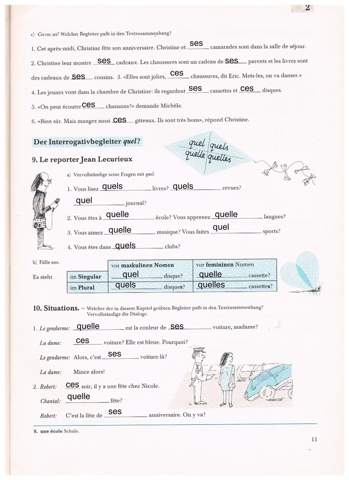 2
c) Ces ou ses? Welcher Begleiter paßt in den Textzusammenhang?
1. Cet après-midi, Christine fête son anniversaire. Christine et ses camarades sont dans la salle de séjour.
2. Christine leur montre ses cadeaux. Les chaussures sont un cadeau de ses parents et les livres sont
des cadeaux de ses cousins. 3. «Elles sont jolies, ces chaussures, dit Eric. Mets-les, on va danser.»
4. Les jeunes vont dans la chambre de Christine: ils regardent ses cassettes et ces disques.
5. «On peut écouter ces chansons?» demande Michèle.
6. «Bien sûr. Mais mangez aussi ces gâteaux. Ils sont très bons», répond Christine.
Der Interrogativbegleiter quel?
quel quels
quelle quelles
9. Le reporter Jean Lecurieux
a) Vervollständige seine Fragen mit quel.
1. Vous lisez quels livres? quels revues?
quel journal?
2. Vous êtes à quelle école? Vous apprenez quelle langues?
3. Vous aimez quelle musique? Vous faites quel sports?
4. Vous êtes dans quels clubs?
b) Fülle aus.
vor maskulinen Nomen vor femininen Nomen
Es steht im Singular quel disque? quelle cassette?
im Plural quels disques? quelles cassettes?
10. Situations. – Welcher der in diesem Kapitel geübten Begleiter paßt in den Textzusammenhang?
Vervollständige die Dialoge.
1. Le gendarme: quelle est la couleur de ses voiture, madame?
La dame: ces voiture? Elle est bleue. Pourquoi?
Le gendarme: Alors, c'est ses voiture-là?
La dame: Mince alors!
2. Robert: ces soir, il y a une fête chez Nicole.
Chantal: quelle fête?
Robert: C'est la fête de ses anniversaire. On y va?
8. une école Schule.
11